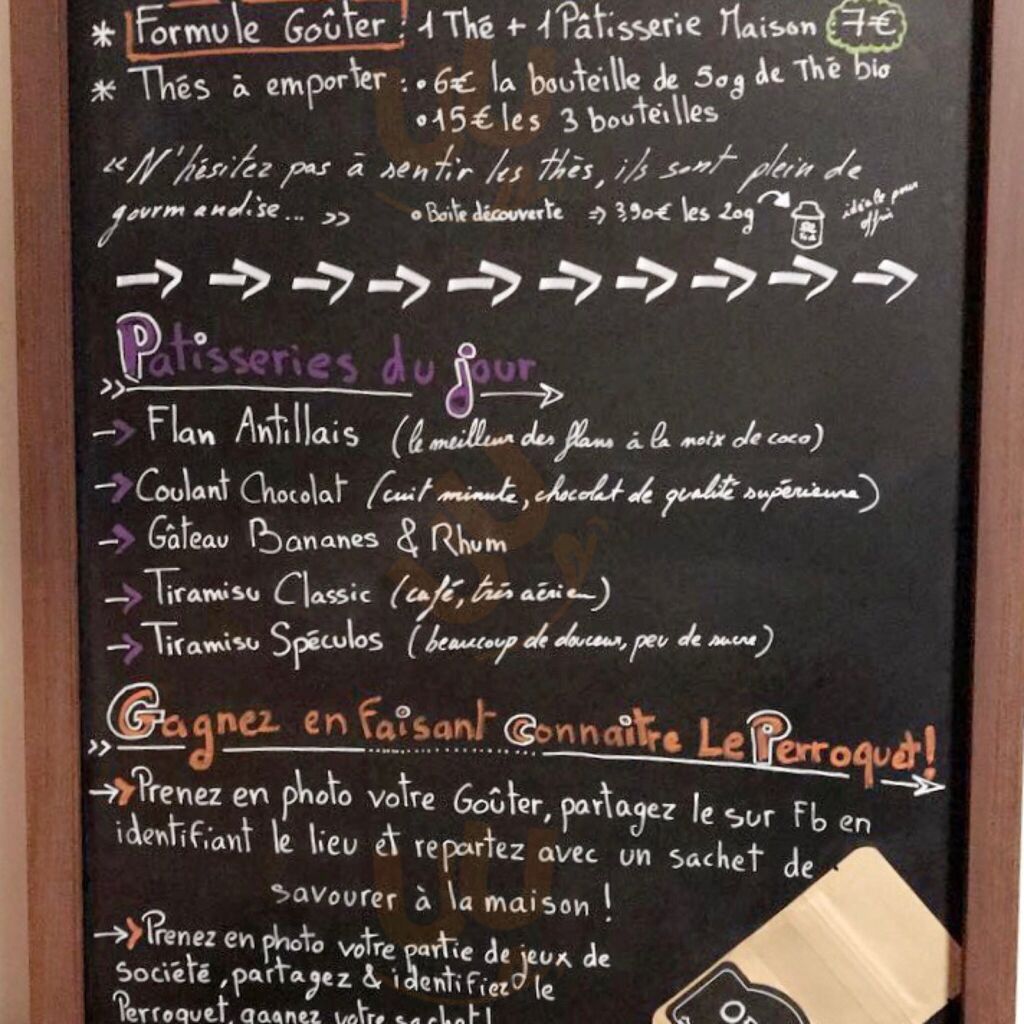 * Formule Goûter : 1 Thé + 1 Pâtisserie Maison 7€
* Thés à emporter : • 6€ la bouteille de 50g de Thé bio
• 15€ les 3 bouteilles
« N'hésitez pas à sentir les thés, ils sont plein de
gourmandise... »
• Boite découverte ⇒ 3,90€ les 20g
idéale pour
offrir
Patisseries du jour
→ Flan Antillais (le meilleur des flans à la noix de coco)
→ Coulant Chocolat (cuit minute, chocolat de qualité supérieure)
→ Gâteau Bananes & Rhum
→ Tiramisu Classic (café, très aérien)
→ Tiramisu Spéculos (beaucoup de douceur, peu de sucre)
Gagnez en faisant connaître Le Perroquet!
→ Prenez en photo votre Goûter, partagez le sur Fb en
identifiant le lieu et repartez avec un sachet de
savourer à la maison !
→ Prenez en photo votre partie de jeux de
société, partagez & identifiez le
Perroquet, gagnez votre sachet!